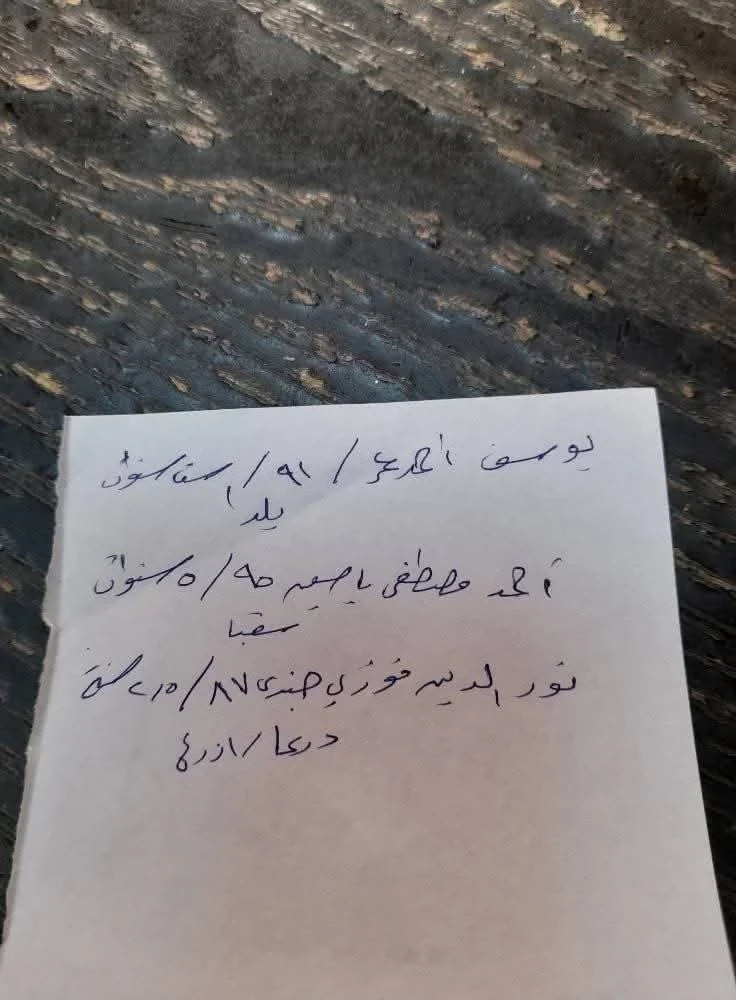 يوسف احمد عمر / ٩١ / ست سنوات
يلدا
أحمد مصطفى ياسين ٩٥ / ٥ سنوات
سقبا
نور الدين فوزي جندي ٨٧ / سنة
درعا / ازرع